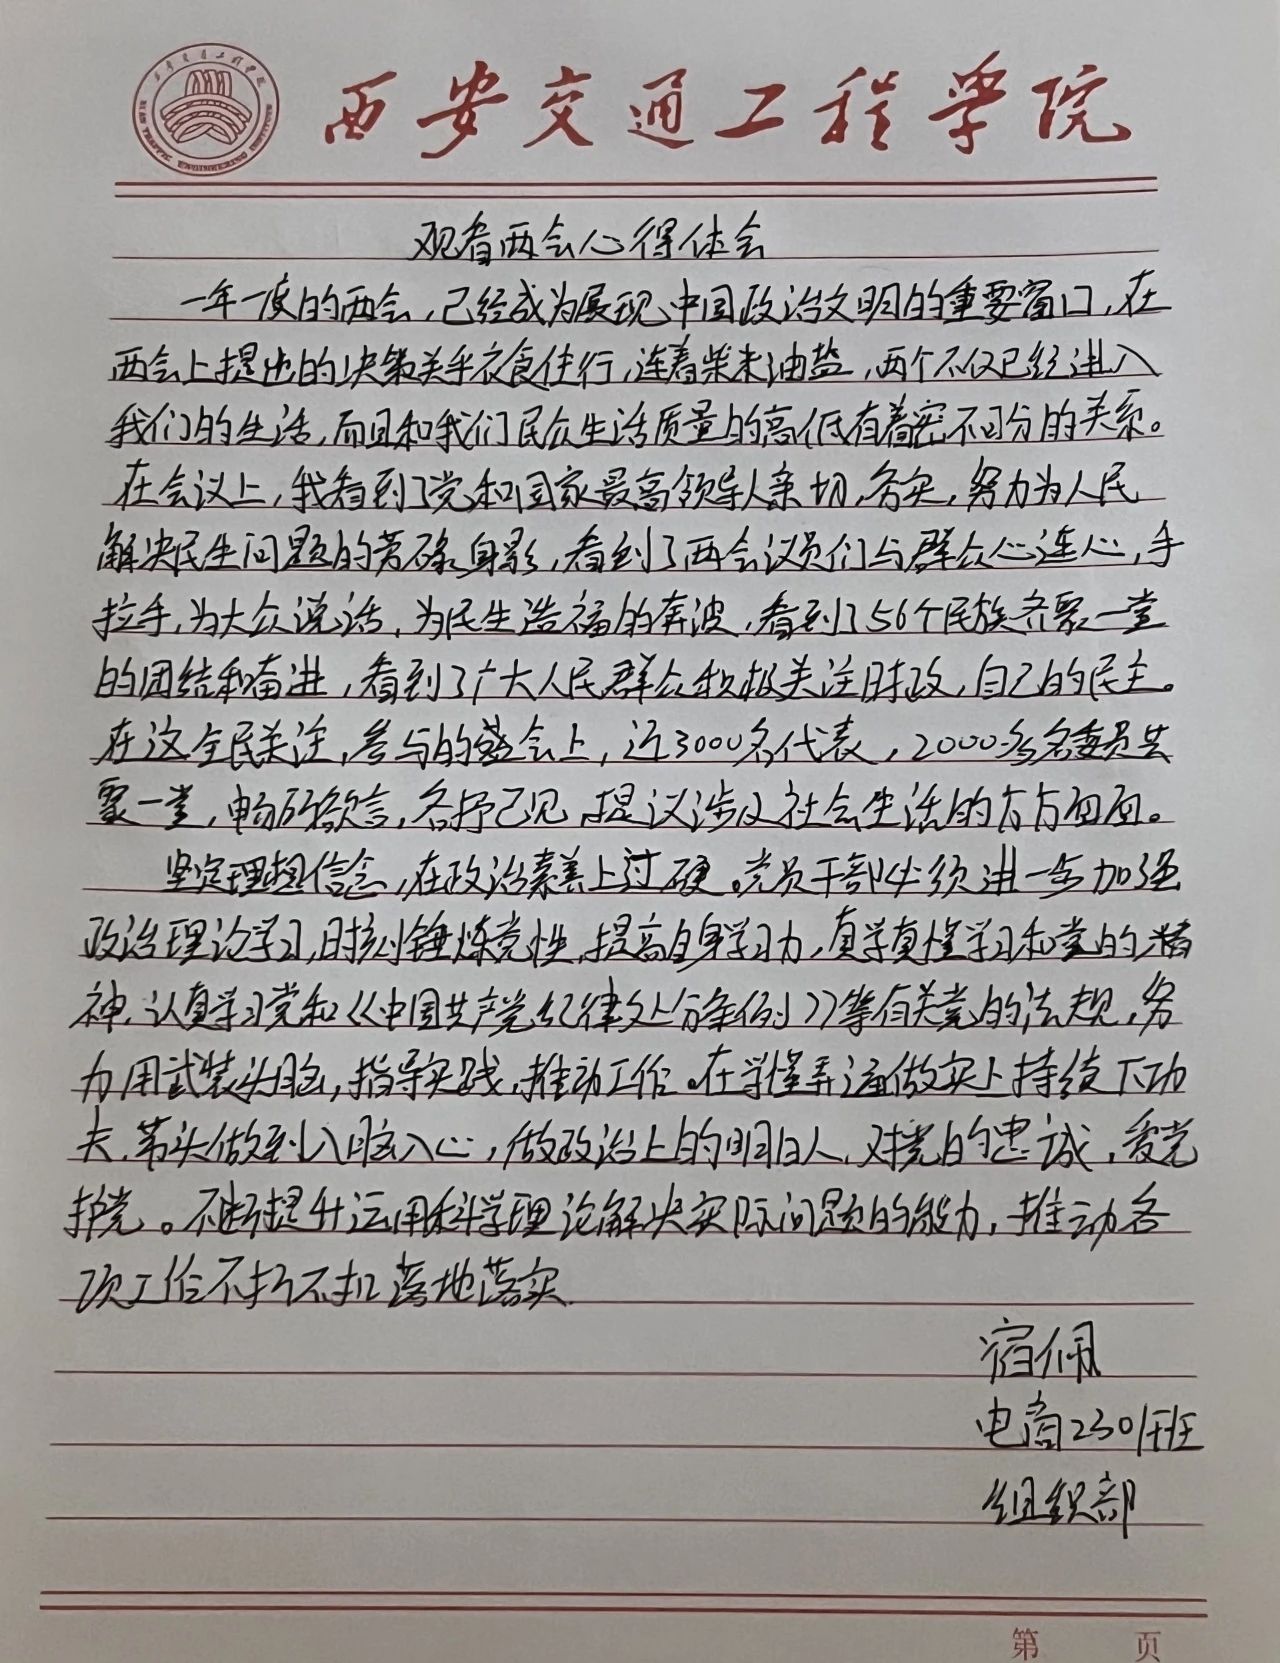 西安交通工程学院
观看两会心得体会
一年一度的两会，已经成为展现中国政治文明的重要窗口，在
两会上提出的决策关乎衣食住行，连着柴米油盐，两个不仅已经进入
我们的生活，而且和我们民众生活质量的高低有着密不可分的关系。
在会议上，我看到了党和国家最高领导人亲切，务实，努力为人民
解决民生问题的劳碌身影，看到了两会议员们与群众心连心，手
拉手，为大众说话，为民生造福的奔波，看到了56个民族齐聚一堂
的团结和奋进，看到了广大人民群众积极关注时政，自己的民主。
在这全民关注，参与的盛会上，近3000名代表，2000多名委员共
聚一堂，畅所欲言，各抒己见，提议涉及社会生活的方方面面。
坚定理想信念，在政治素养上过硬。党员干部必须进一步加强
政治理论学习，时刻锤炼党性，提高自身学习力，真学真懂学习和党的精
神，认真学习党和《中国共产党纪律处分条例》等有关党的法规，努
力用武装头脑，指导实践，推动工作。在学懂弄通做实上持续下功
夫，带头做到入脑入心，做政治上的明白人，对党的忠诚，爱党
护党。不断提升运用科学理论解决实际问题的能力，推动各
项工作不折不扣落地落实
宿佩
电商2301班
组织部
第 页